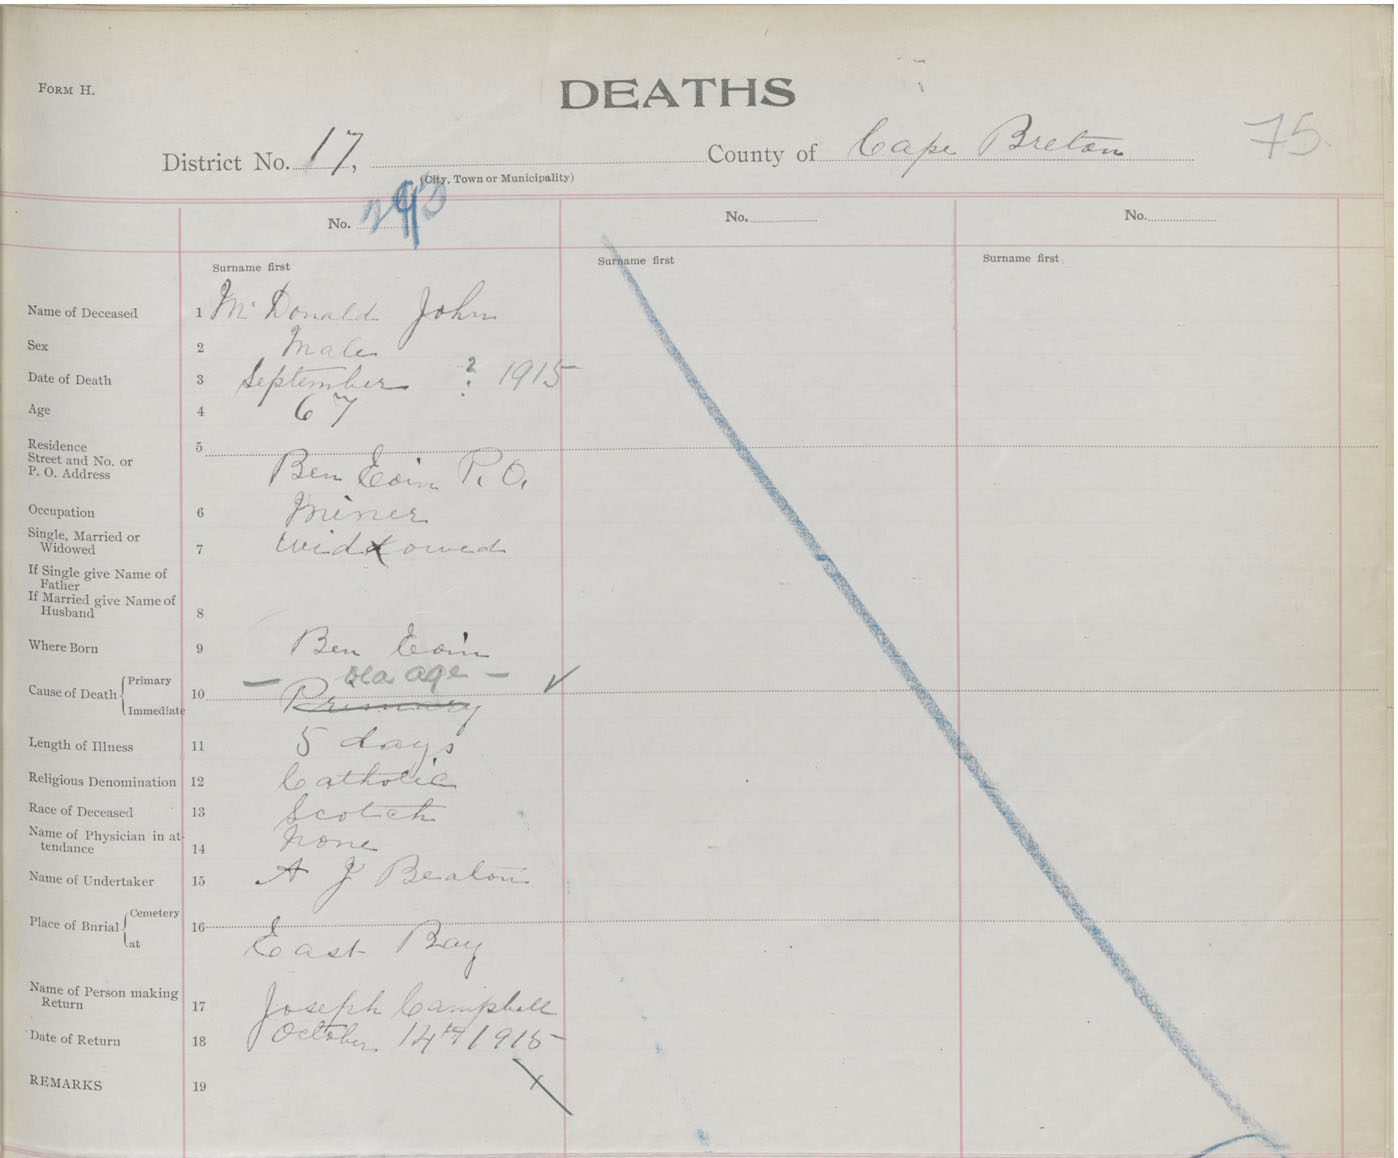 FORM H.
DEATHS
75
District No. 17, County of Cape Breton
(City, Town or Municipality)
No. No. No.
Surname first Surname first Surname first
Name of Deceased 1 McDonald John
Sex 2 Male
Date of Death 3 September ? 1915
Age 4 67
Residence 5
Street and No. or
P. O. Address Ben Eoin P.O.
Occupation 6 Miner
Single, Married or
Widowed 7 Widowed
If Single give Name of
Father
If Married give Name of
Husband 8
Where Born 9 Ben Eoin
— age —
Cause of Death { Primary
Immediate 10 Primary
Length of Illness 11 5 days
Religious Denomination 12 Catholic
Race of Deceased 13 Scotch
Name of Physician in at-
tendance 14 None
Name of Undertaker 15 A J Beaton
Place of Burial { Cemetery
at 16 East Bay
Name of Person making
Return 17 Joseph Campbell
Date of Return 18 October 14th 1915
REMARKS 19